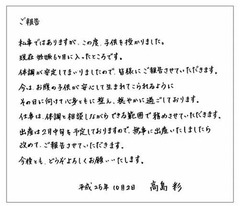 ご報告
私事ではありますが、この度、子供を授かりました。
現在 妊娠6ヶ月に入ったところです。
体調が安定してまいりましたので、皆様にご報告させていただきます。
今は、お腹の子供が安心して生まれてこられるように
その日に向けて心身ともに整え、穏やかに過ごしております。
仕事は、体調と相談しながらできる範囲で務めさせていただきます。
出産は2月中旬を予定しておりますので、無事に出産いたしましたら
改めて、ご報告させていただきます。
今後とも、どうぞよろしくお願いいたします。
平成25年 10月2日 高島 彩